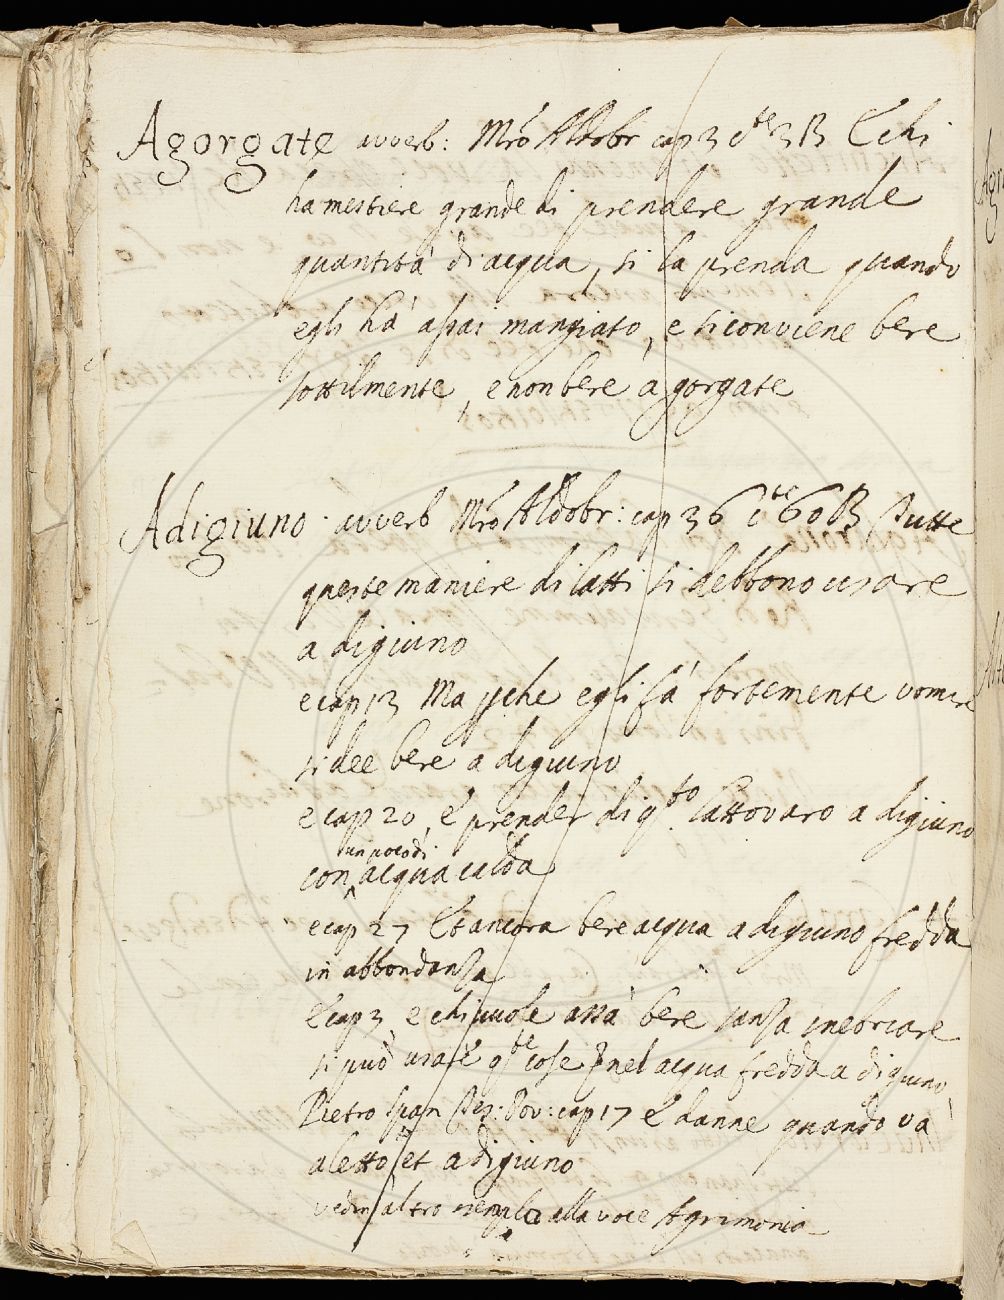 Agorgate avverb: Mro Aldobr cap 3 cte 3B E chi
ha mestiere grande di prendere grande
quantità di acqua, si la prenda quando
egli hà assai mangiato, e si conviene bere
sottilmente, e non bere à gorgate
Adigiuno avverb Mro Aldobr: cap 36 cte 60B Tutte
queste maniere di latti si debbono usare
a digiuno
e cap 13 Ma pche egli fà fortemente vomire
si dee bere a digiuno
e cap 20, e prender di qto lattovaro a digiuno
un poco di
con acqua calda
e cap 27 Et ancora bere acqua a digiuno fredda
in abbondanza
E cap 3 e chi vuole assà bere sanza inebriare
si può usare qte cose nel acqua fredda a digiuno
Pietro Span Tes: Pov: cap 17 e danne quando va
a letto et a digiuno
vedin altro esemplo alla voce Agrimonia